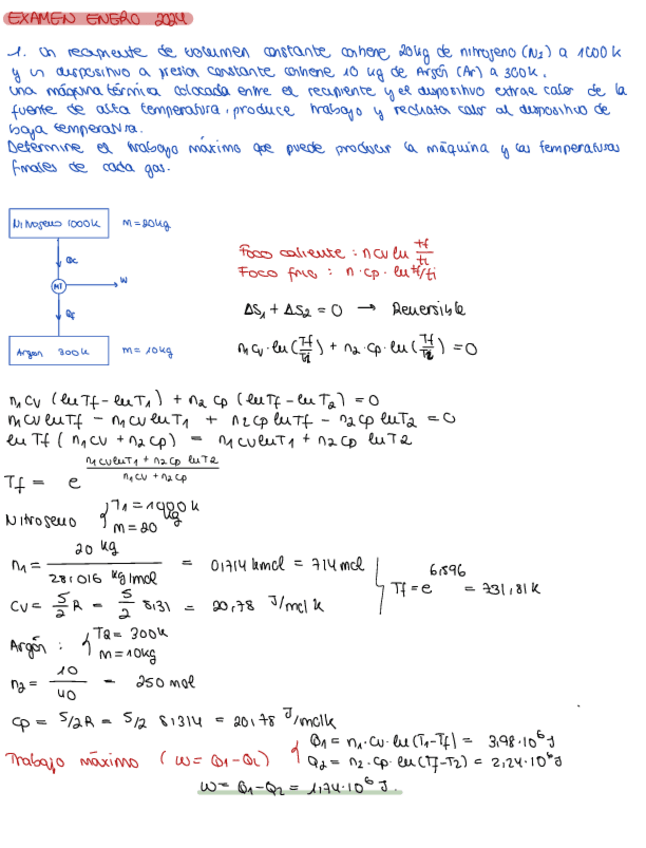 EXAMEN ENERO 2024
1. Un recipiente de volumen constante contiene 20kg de nitrogeno (N₂) a 1000k
y un dispositivo a presion constante contiene 10 kg de Argón (Ar) a 300k.
una máquina térmica colocada entre el recipiente y el dispositivo extrae calor de la
fuente de alta temperatura, produce trabajo y rechaza calor al dispositivo de
baja temperatura.
Determine el trabajo máximo que puede producir la máquina y las temperaturas
finales de cada gas.
Nitrogeno 1000k m=20kg
Qc
MT W
Qf
Argon 300k m=10kg
Foco caliente : n cv ln tf/ti
Foco frio : n · cp · ln tf/ti
ΔS₁ + ΔS₂ = 0 → Reversible
n₁cv · ln(Tf/T1) + n₂ · cp · ln(Tf/T2) = 0
n₁ cv (ln Tf - ln T₁) + n₂ cp (ln Tf - ln T₂) = 0
n₁ cv ln Tf - n₁ cv ln T₁ + n₂ cp ln Tf - n₂ cp ln T₂ = 0
ln Tf ( n₁ cv + n₂ cp) = n₁ cv ln T₁ + n₂ cp ln T₂
Tf = e^(n₁ cv ln T₁ + n₂ cp ln T₂ / n₁ cv + n₂ cp)
Nitrogeno { T₁ = 1000 k
m = 20 kg
n₁ = 20 kg / 28,016 kg/mol = 0,714 kmol = 714 mol
Cv = 5/2 R = 5/2 8,31 = 20,78 J/mol k
Tf = e^6,596 = 731,81 k
Argón : { T₂ = 300k
m = 10kg
n₂ = 10/40 = 250 mol
cp = 5/2 R = 5/2 8,1314 = 20,78 J/molk
Trabajo máximo ( W = Q1 - Q2) { Q1 = n₁ · cv · ln (T1 - Tf) = 3,98 · 10⁶ J
Q2 = n₂ · cp · ln (Tf - T2) = 2,24 · 10⁶ J
W = Q1 - Q2 = 1,74 · 10⁶ J.